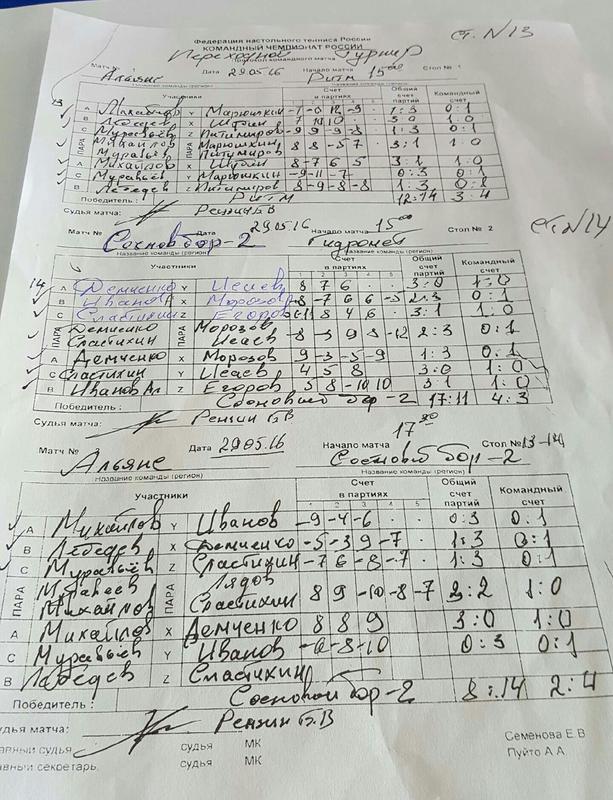 ст. N 13
Федерация настольного тенниса России
КОМАНДНЫЙ ЧЕМПИОНАТ РОССИИ
Турнир
Протокол командного матча
Матч № Дата 29.05.16 Начало матча 15 00 Стол № 1
Альянс Ритм
Участники Счет в партиях Общий счет партий Командный счет
А Михайлов Y Марюшкин -7 -0 -9 1:3 0:1
В Лебедев X 7 10 10 3:0 1:0
С Муравьёв Z Питимиров -9 9 9 -3 1:3 0:1
ПАРА Михайлов Муравьев ПАРА Марюшкин Питимиров 8 8 -5 7 3:1 1:0
А Михайлов X 8 -7 6 5 3:1 1:0
С Муравьев Y Марюшкин -9 -11 -7 0:3 0:1
В Лебедев Z Питимиров 8 -9 -8 -8 1:3 0:1
Победитель: Ритм 12:14 3:4
Судья матча: Рензин Б В
ст. N 14
Матч № Дата 29.05.16 Начало матча 15 00 Стол № 2
Сосновый бор-2 Гидроней
Название команды (регион) Название команды (регион)
Участники Счет в партиях Общий счет партий Командный счет
14
А Демченко Y Исаев 8 7 6 3:0 1:0
В Иванов X Морозов 8 -7 6 6 -5 2:3 0:1
С Сластихин Z Егоров -11 8 4 6 3:1 1:0
ПАРА Демченко Сластихин ПАРА Морозов Исаев -8 3 9 8 -12 2:3 0:1
А Демченко X Морозов 9 -3 -5 -9 1:3 0:1
С Сластихин Y Исаев 4 5 8 3:0 1:0
В Иванов Ал Z Егоров 5 8 -10 10 3:1 1:0
Победитель: Сосновый бор-2 17:11 4:3
Судья матча: Рензин Б В
Матч № Дата 29.05.16 Начало матча 17 20 Стол № 13-14
Альянс Сосновый бор-2
Название команды (регион) Название команды (регион)
Участники Счет в партиях Общий счет партий Командный счет
1 2 3 4 5
А Михайлов Y Иванов -9 -4 -6 0:3 0:1
В Лебедев X Демченко -5 -3 9 -7 1:3 0:1
С Муравьёв Z Сластихин -7 6 -8 -7 1:3 0:1
ПАРА Муравьев Михайлов ПАРА Лядов Сластихин 8 9 -10 -8 -7 3:2 1:0
А Михайлов X Демченко 8 8 9 3:0 1:0
С Муравьев Y Иванов -8 -10 0:3 0:1
В Лебедев Z Сластихин
Победитель: Сосновый бор-2 8:14 2:4
Судья матча: Рензин Б.В
Главный судья судья МК Семенова Е.В
Главный секретарь судья МК Пуйто А.А.